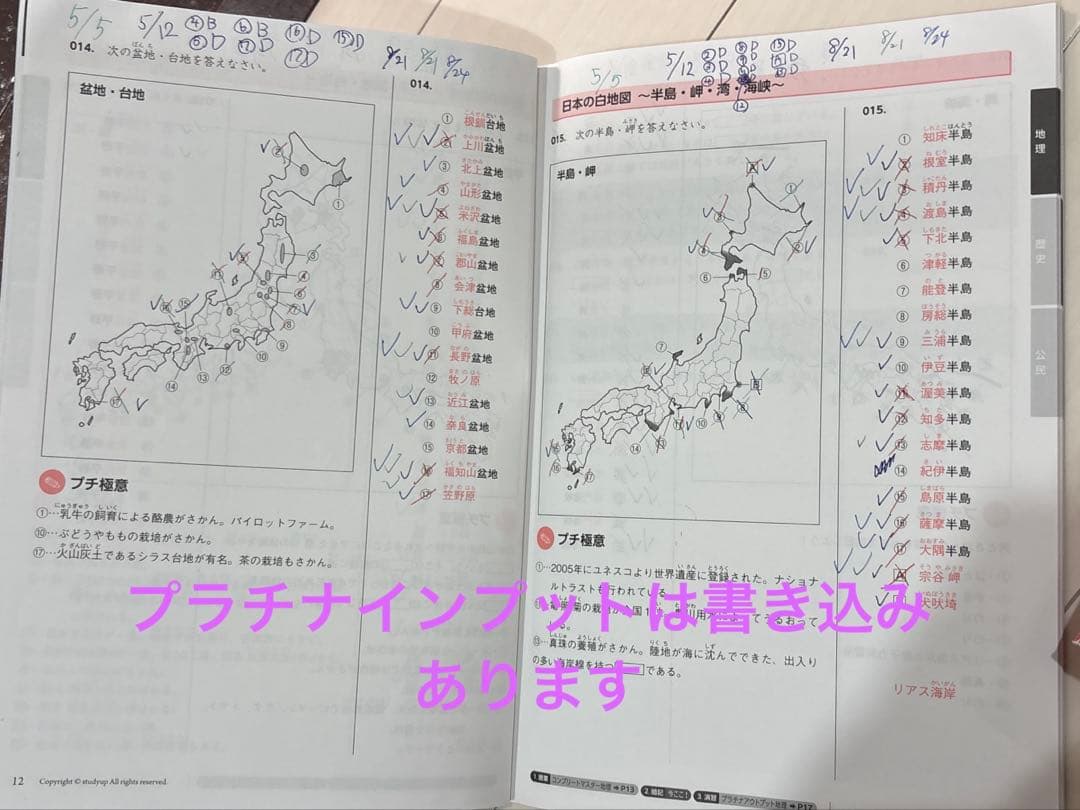 5/5 5/12 ④B ⑥B ⑯D ⑮D
⑰D
8/21 8/21 8/24
014. 次の盆地・台地を答えなさい。
盆地・台地
014.
① 根釧台地
② 上川盆地
③ 北上盆地
④ 山形盆地
⑤ 米沢盆地
⑥ 福島盆地
⑦ 郡山盆地
⑧ 会津盆地
⑨ 下総台地
⑩ 甲府盆地
⑪ 長野盆地
⑫ 牧ノ原
⑬ 近江盆地
⑭ 奈良盆地
⑮ 京都盆地
⑯ 福知山盆地
⑰ 笠野原
プチ極意
①…乳牛の飼育による酪農がさかん。パイロットファーム。
⑩…ぶどうやももの栽培がさかん。
⑰…火山灰土であるシラス台地が有名。茶の栽培もさかん。
12 Copyright © studyup All rights reserved.
5/5 5/12
8/21 8/21 8/24
日本の白地図 〜半島・岬・湾・海峡〜
015. 次の半島・岬を答えなさい。
半島・岬
015.
① 知床半島
② 根室半島
③ 積丹半島
④ 渡島半島
⑤ 下北半島
⑥ 津軽半島
⑦ 能登半島
⑧ 房総半島
⑨ 三浦半島
⑩ 伊豆半島
⑪ 渥美半島
⑫ 知多半島
⑬ 志摩半島
⑭ 紀伊半島
⑮ 島原半島
⑯ 薩摩半島
⑰ 大隅半島
A 宗谷岬
犬吠埼
プチ極意
①…2005年にユネスコより世界遺産に登録された。ナショナ
ルトラストも行われている。
⑬…真珠の養殖がさかん。陸地が海に沈んでできた、出入り
の多い海岸線を持つ である。
リアス海岸
1 授業 コンプリートマスター地理 ➡ P13 2 暗記 今ここ! 3 演習 プラチナアウトプット地理 ➡ P17
地理
歴史
公民
プラチナインプットは書き込み
あります